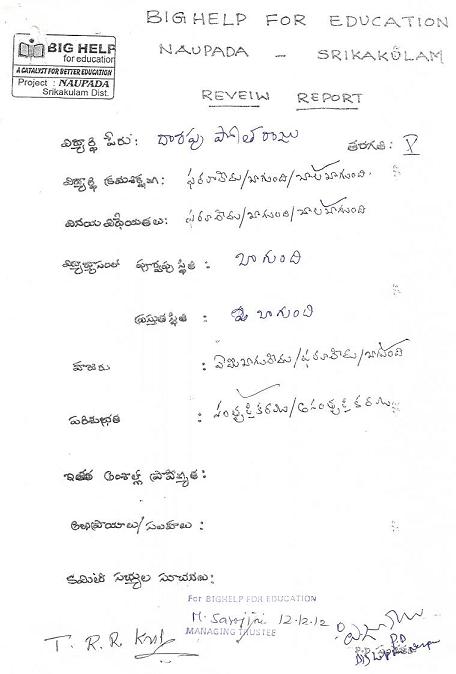 BIGHELP FOR EDUCATION
NAUPADA - SRIKAKULAM
BIG HELP
for education
A CATALYST FOR BETTER EDUCATION
Project : NAUPADA
Srikakulam Dist.
REVEIW REPORT
విద్యార్థి పేరు: రాజు తరగతి: V
విద్యార్థి క్రమశిక్షణ: పరవాలేదు/బాగుంది/చాలా బాగుంది.
వినయ విధేయతలు: పరవాలేదు/బాగుంది/చాలా బాగుంది
పూర్వపు స్థితి : బాగుంది
ప్రస్తుత స్థితి : బాగుంది
హాజరు : ఏమిబాగులేదు/పరవాలేదు/బాగుంది
పరిశుభ్రత : సంతృప్తికరము/అసంతృప్తికరము
ఇతర అంశాల్లో ప్రావీణ్యత:
అభిప్రాయాలు/సలహాలు:
కమిటీ సభ్యుల సూచనలు:
For BIGHELP FOR EDUCATION
M. Sarojini 12-12-12
MANAGING TRUSTEE
T. R. R
P.D